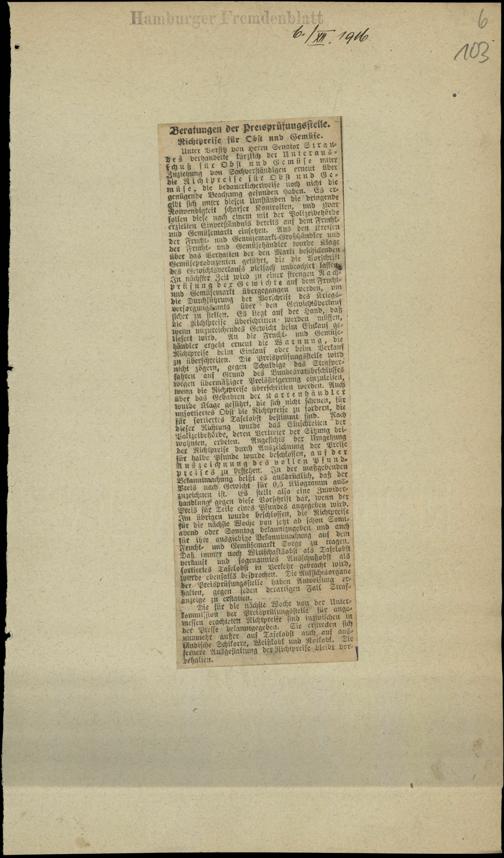 Hamburger Fremdenblatt
6./XII. 1916
6
103
Beratungen der Preisprüfungsstelle.
Richtpreise für Obst und Gemüse.
Unter Vorsitz von Herrn Senator Stran-
des verhandelte kürzlich der Unteraus-
schuß für Obst und Gemüse unter
Zuziehung von Sachverständigen erneut über
die Richtpreise für Obst und Ge-
müse, die bedauerlicherweise noch nicht die
genügende Beachtung gefunden haben. Es er-
gibt sich unter diesen Umständen die dringende
Notwendigkeit scharfer Kontrollen, und zwar
sollen diese nach einem mit der Polizeibehörde
erzielten Einverständnis bereits auf dem Frucht-
und Gemüsemarkt einsetzen. Aus den Kreisen
der Frucht- und Gemüsemarkt-Großhändler und
der Frucht- und Gemüsehändler wurde Klage
über das Verhalten der den Markt beschickenden
Gemüseproduzenten geführt, die die Vorschrift
des Gewichtsverkaufs vielfach unbeachtet lassen.
In nächster Zeit wird zu einer strengen Nach-
prüfung der Gewichte auf dem Frucht-
und Gemüsemarkt übergegangen werden, um
die Durchführung der Vorschrift des Kriegs-
versorgungsamts über den Gewichtsverkauf
sicher zu stellen. Es liegt auf der Hand, daß
die Richtpreise überschritten werden müssen,
wenn unzureichendes Gewicht beim Einkauf ge-
liefert wird. An die Frucht- und Gemüse-
händler ergeht erneut die Warnung, die
Richtpreise beim Einkauf oder beim Verkauf
zu überschreiten. Die Preisprüfungsstelle wird
nicht zögern, gegen Schuldige das Strafver-
fahren auf Grund des Bundesratsbeschlusses
wegen übermäßiger Preissteigerung einzuleiten,
wenn die Richtpreise überschritten werden. Auch
über das Gebahren der Karrenhändler
wurde Klage geführt, die sich nicht scheuen, für
unsortiertes Obst die Richtpreise zu fordern, die
für sortiertes Tafelobst bestimmt sind. Nach
dieser Richtung wurde das Einschreiten der
Polizeibehörde, deren Vertreter der Sitzung bei-
wohnten, erbeten. Angesichts der Umgehung
der Richtpreise durch Auszeichnung der Preise
für halbe Pfunde wurde beschlossen, auf der
Auszeichnung des vollen Pfund-
preises zu bestehen. In der maßgebenden
Bekanntmachung heißt es ausdrücklich, daß der
Preis nach Gewicht für 0,5 Kilogramm aus-
zuzeichnen ist. Es stellt also eine Zuwider-
handlung gegen diese Vorschrift dar, wenn der
Preis für Teile eines Pfundes angegeben wird.
Im übrigen wurde beschlossen, die Richtpreise
für die nächste Woche von jetzt ab schon Sonn-
abend oder Sonntag bekanntzugeben und auch
für ihre ausgiebige Bekanntmachung auf dem
Frucht- und Gemüsemarkt Sorge zu tragen.
Daß immer noch Wirtschaftsobst als Tafelobst
verkauft und sogenanntes Ausschußobst als
sortiertes Tafelobst in Verkehr gebracht wird,
wurde ebenfalls besprochen. Die Aufsichtsorgane
der Preisprüfungsstelle haben Anweisung er-
halten, gegen jeden derartigen Fall Straf-
anzeige zu erstatten.
Die für die nächste Woche von der Unter-
kommission der Preisprüfungsstelle für ange-
messen erachteten Richtpreise sind inzwischen in
der Presse bekanntgegeben. Sie erstrecken sich
nunmehr außer auf Tafelobst auch auf aus-
ländische Weißkohl und Rotkohl. Die
fernere Ausgestaltung der Richtpreise bleibt vor-
behalten.